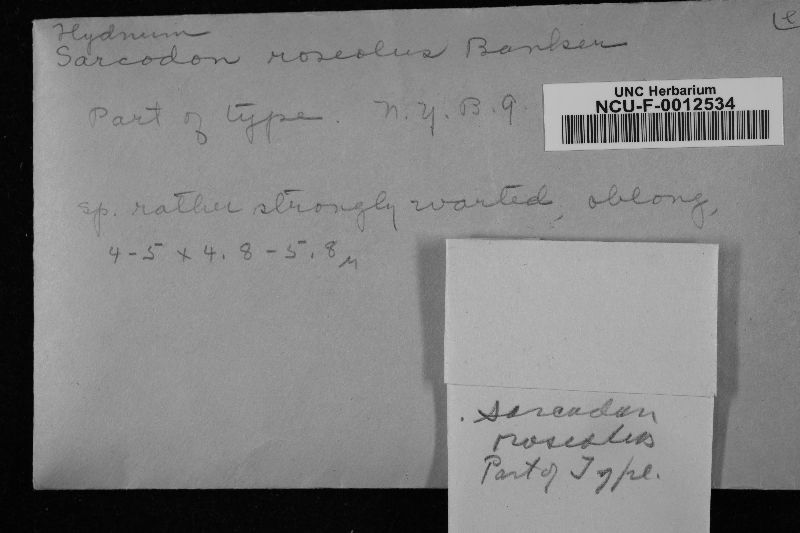 Hydnum
Sarcodon roseolus Banker
UNC Herbarium
NCU-F-0012534
Part of type. N.Y.B.G.
sp. rather strongly warted, oblong,
4-5 x 4.8-5.8µ
Sarcodon
roseolus
Part of Type.